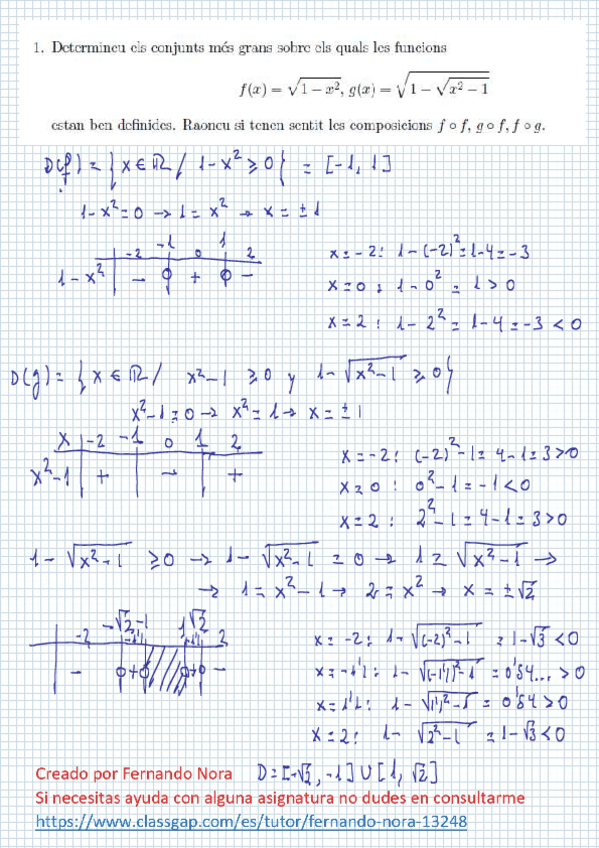 1. Determineu els conjunts més grans sobre els quals les funcions
f(x) = √(1 − x²), g(x) = √(1 − √(x² − 1))
estan ben definides. Raoneu si tenen sentit les composicions f ∘ f, g ∘ f, f ∘ g.
D(f) = { x ∈ ℝ / 1-x² ≥ 0 } = [-1, 1]
1-x² = 0 → 1 = x² → x = ±1
-2 -1 0 1 2
1-x² - 0 + 0 -
x = -2 : 1-(-2)² = 1-4 = -3
x = 0 : 1-0² = 1 > 0
x = 2 : 1-2² = 1-4 = -3 < 0
D(g) = { x ∈ ℝ / x²-1 ≥ 0 y 1-√(x²-1) ≥ 0 }
x²-1 = 0 → x² = 1 → x = ±1
x -2 -1 0 1 2
x²-1 + - +
x = -2 : (-2)²-1 = 4-1 = 3 > 0
x = 0 : 0²-1 = -1 < 0
x = 2 : 2²-1 = 4-1 = 3 > 0
1-√(x²-1) ≥ 0 → 1-√(x²-1) = 0 → 1 = √(x²-1) →
→ 1 = x²-1 → 2 = x² → x = ±√2
-2 -√2 -1 1 √2 2
- 0 + 0 0 + 0 -
x = -2 : 1-√((-2)²-1) = 1-√3 < 0
x = -1'1 : 1-√((-1'1)²-1) = 0'54... > 0
x = 1'1 : 1-√(1'1²-1) = 0'54 > 0
x = 2 : 1-√(2²-1) = 1-√3 < 0
D = [-√2, -1] ∪ [1, √2]
Creado por Fernando Nora
Si necesitas ayuda con alguna asignatura no dudes en consultarme
https://www.classgap.com/es/tutor/fernando-nora-13248